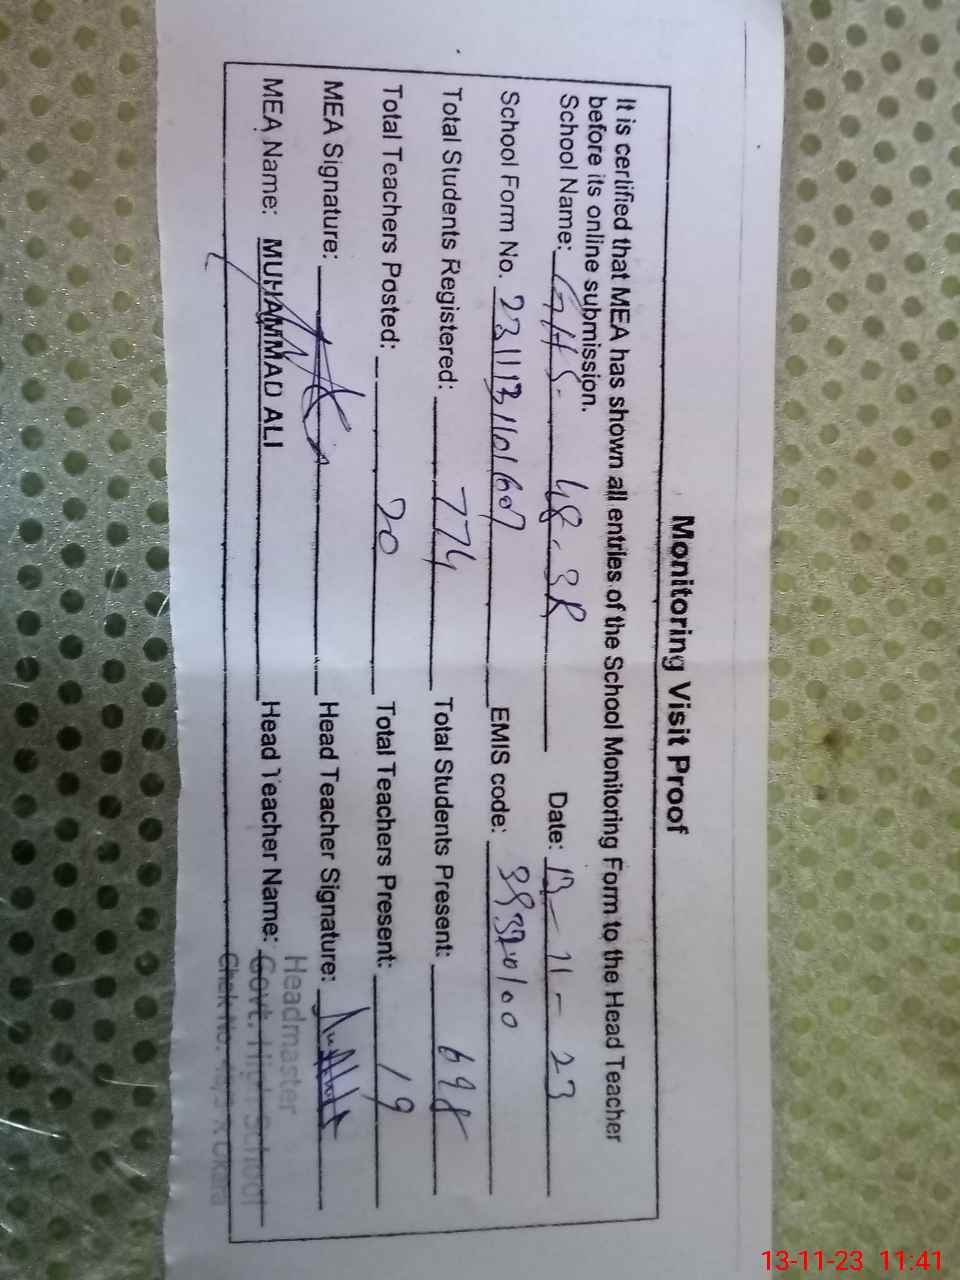 Monitoring Visit Proof
It is certified that MEA has shown all entries of the School Monitoring Form to the Head Teacher
before its online submission.
School Name: GHS. 48.3R Date: 13-11-23
School Form No. EMIS code:
Total Students Registered: 774 Total Students Present: 698
Total Teachers Posted: 20 Total Teachers Present: 19
MEA Signature: Head Teacher Signature:
MEA Name: MUHAMMAD ALI Head Teacher Name:
Headmaster
Govt. High School
Chak No. Okara
13-11-23 11:41